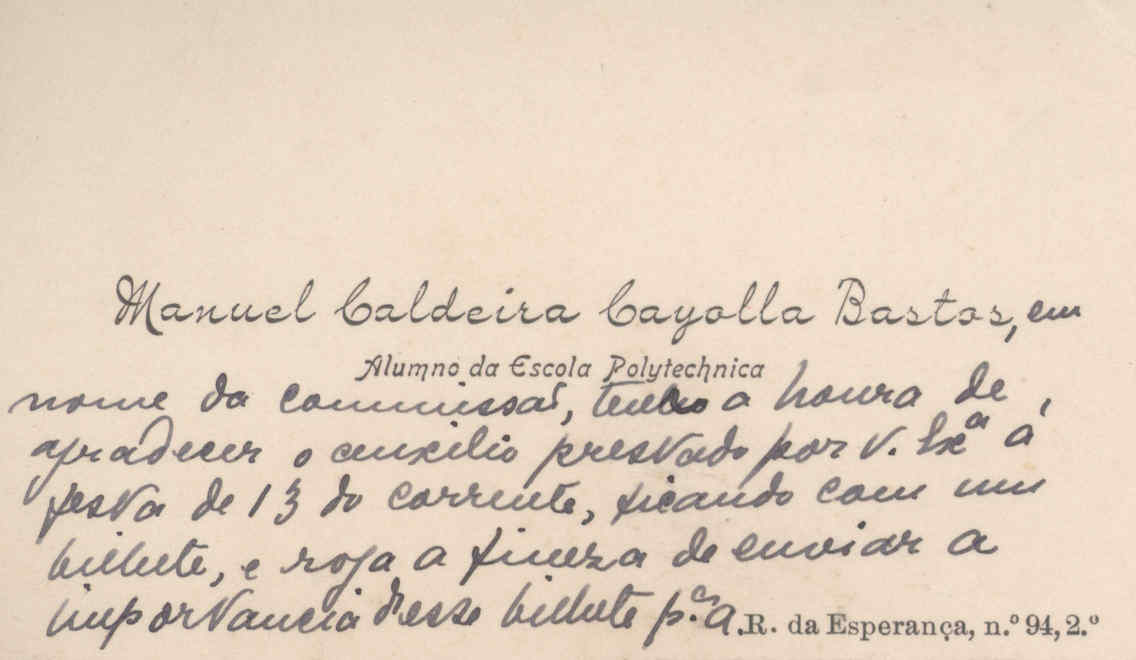 Manuel Caldeira Cayolla Bastos, em
Alumno da Escola Polytechnica
nome da commissão, tenho a honra de
agradecer o auxilio prestado por V. Exª á
festa de 13 do corrente, ficando com um
bilhete, e roga a fineza de enviar a
importancia d'esse bilhete p.ª a
R. da Esperança, n.º 94, 2.º